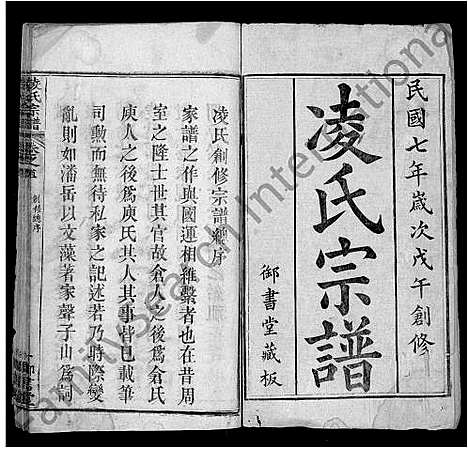 民國七年歲次戊午創修
凌氏宗譜
御書堂藏板
凌氏創修宗譜總序
家譜之作與國運相維繫者也在昔周
室之隆士世其官故倉人之後為倉氏
庾人之後為庾氏其人其事皆已載筆
司勲而無待私家之記述若乃時際變
亂則如潘岳以文藻著家聲子山為詞
凌氏宗譜
卷之首
創修總序
FamilySearch International